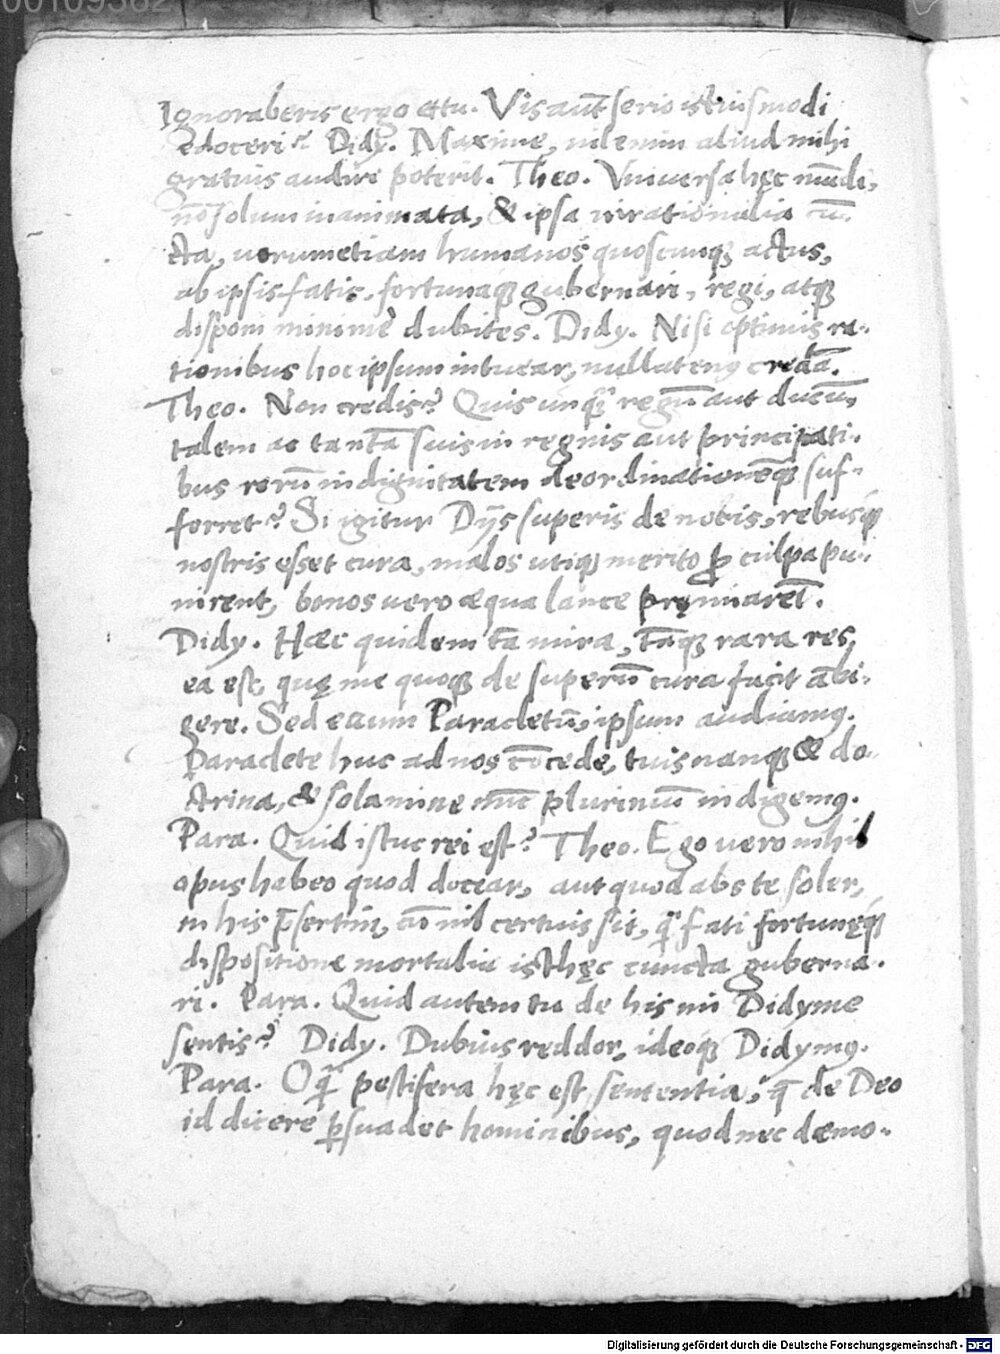 Ignoraberis ergo & tu. Vis aūt serio istiusmodi
edoceri? Didy. Maxime, nil enim aliud mihi
gratius audire poterit. Theo. Vniuersa hęc mūdi,
nō solum inanimata, & ipsa irrationalia cū-
cta, uerumetiam humanos quoscunq; actus,
ab ipsis fatis, fortunaq; gubernari, regi, atq;
disponi minime dubites. Didy. Nisi optimis ra-
tionibus hoc ipsum intuear, nullatenꝰ credā.
Theo. Non credis? Quis unq̄ regū aut ducū,
talem ac tantā suis in regnis aut principati-
bus rerū indignitatem deordinationēq; suf-
ferret? Si igitur Dijs superis de nobis, rebusq;
nostris esset cura, malos utiq; merito ꝓ culpa pu-
nirent, bonos uero æqua lance pręmiarēt.
Didy. Hæc quidem tā mira, tāq; rara res
ea est, quę me quoq; de superū cura facit ābi-
gere. Sed eccum Paracletū, ipsum audiamꝰ.
Paraclete huc ad nos cōcede, tuis nanq; & do-
ctrina, & solamine nūc plurimū indigemꝰ.
Para. Quid istuc rei est? Theo. Ego uero nihil
opus habeo quod docear, aut quod abs te soler,
in his p̄sertim, cū nil certius sit, q̄ fati fortunęq;
dispositione mortalia isthęc cuncta guberna-
ri. Para. Quid autem tu de his mi Didyme
sentis? Didy. Dubius reddor, ideoq; Didymꝰ.
Para. O q̄ pestifera hęc est sententia, q̄ de Deo
id dicere ꝑsuadet hominibus, quod nec dæmo-
Digitalisierung gefördert durch die Deutsche Forschungsgemeinschaft - DFG